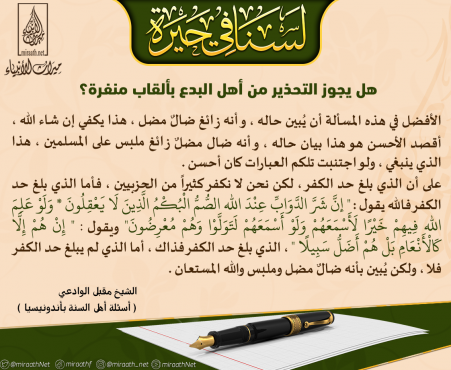 لسنا في حيرة
ميراث الأنبياء
miraath.Net
هل يجوز التحذير من أهل البدع بألقاب منفرة؟
الأفضل في هذه المسألة أن يُبين حاله ، و أنه زائغ ضالٌ مضل ، هذا يكفي إن شاء الله ،
أقصد الأحسن هو هذا بيان حاله ، و أنه ضال مضلٌ زائغ ملبس على المسلمين ، هذا
الذي ينبغي ، ولو اجتنبت تلكم العبارات كان أحسن .
على أن الذي بلغ حد الكفر ، لكن نحن لا نكفر كثيراً من الحزبيين ، فأما الذي بلغ حد
الكفر فالله يقول : " إِنَّ شَرَّ الدَّوَابِّ عِنْدَ اللَّهِ الصُّمُّ الْبُكْمُ الَّذِينَ لَا يَعْقِلُونَ * وَلَوْ عَلِمَ
اللَّهُ فِيهِمْ خَيْرًا لَأَسْمَعَهُمْ وَلَوْ أَسْمَعَهُمْ لَتَوَلَّوْا وَهُمْ مُعْرِضُونَ" ويقول : " إِنْ هُمْ إِلَّا
كَالْأَنْعَامِ بَلْ هُمْ أَضَلُّ سَبِيلًا " ، الذي بلغ حد الكفر فذاك ، أما الذي لم يبلغ حد الكفر
فلا ، ولكن يُبين بأنه ضالٌ مضل وملبس والله المستعان .
الشيخ مقبل الوادعي
( أسئلة أهل السنة بأندونيسيا )
@miraathNet @miraathf @miraath_net @miraathNet